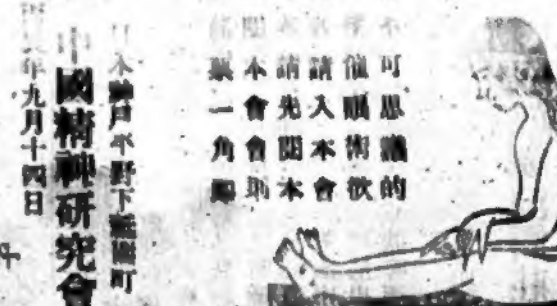 不可思議的
催眠術欲
請入本會
請先閱本
本會會則
票一角
日本神戶平野下祇園町
中國精神研究會
年九月十四日